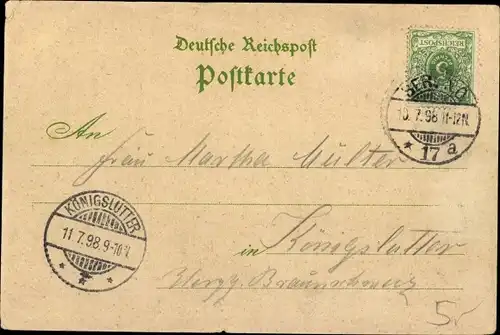 Deutsche Reichspost
Postkarte
REICHSPOST
5
BERLIN
10.7.98.11-12N.
* 17 a
An
Frau Martha Müller
KÖNIGSLUTTER
11.7.98.9-10V.
* * *
in Königslutter
Herzg. Braunschweig
5,-